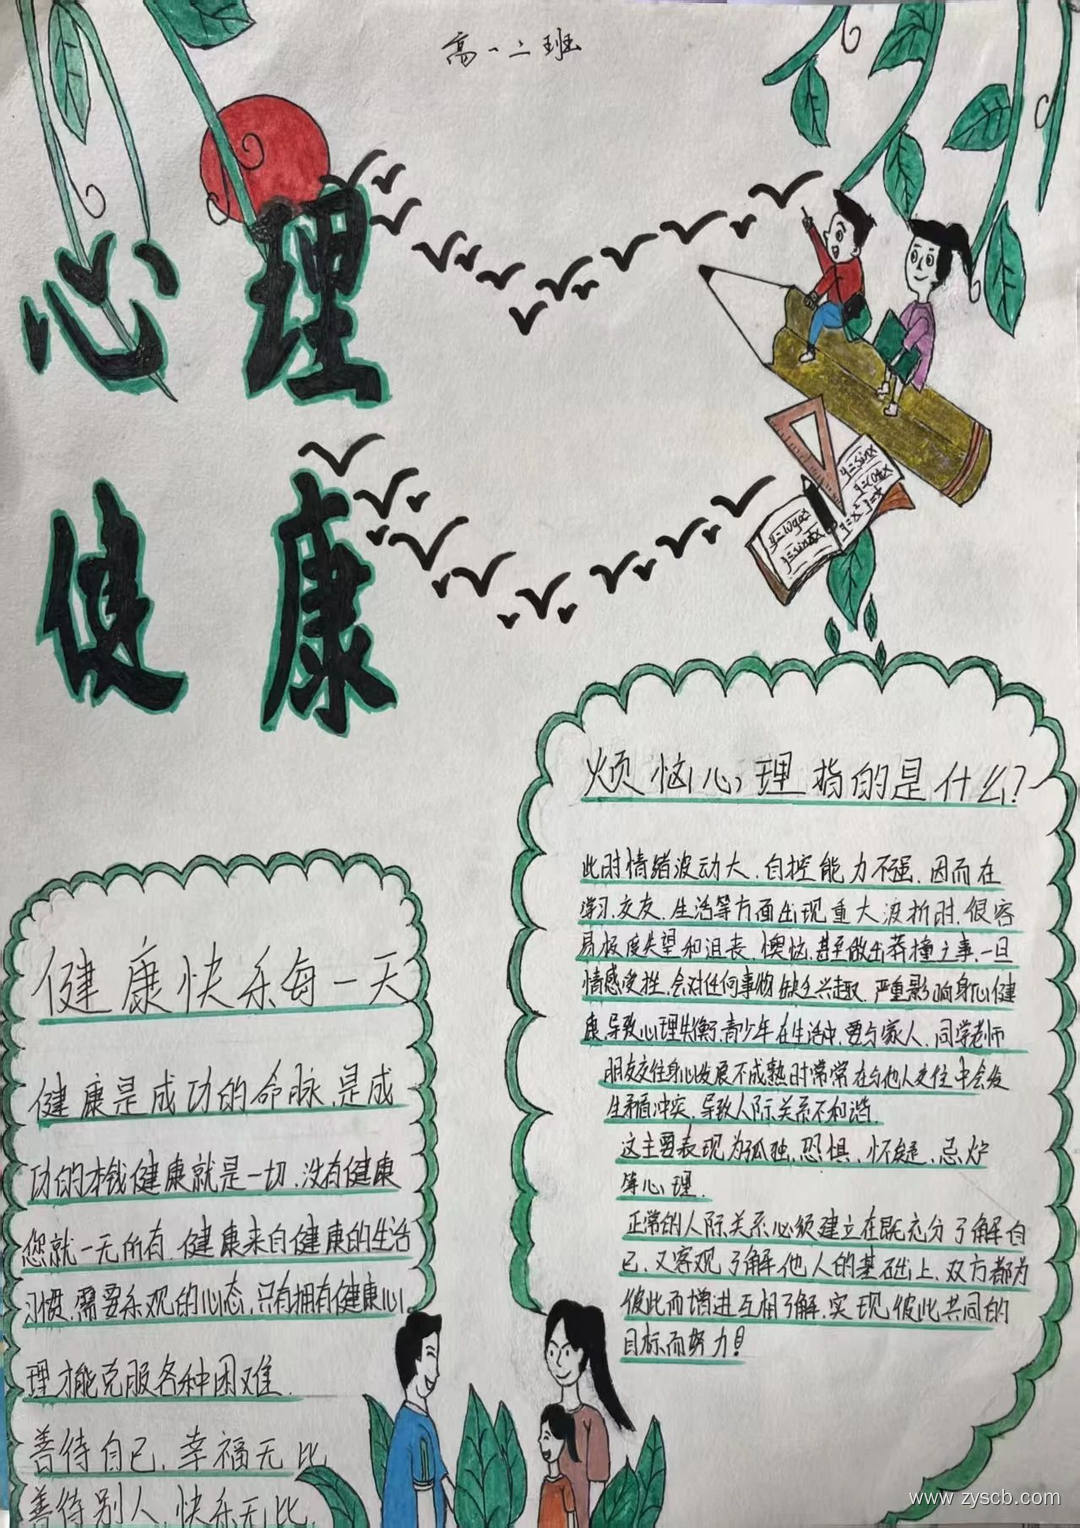 高一二班
心理
健康
y=sinx
烦恼心理指的是什么?
此时情绪波动大.自控能力不强.因而在
学习.交友.生活等方面出现重大波折时.很容
易极度失望和沮丧.懊恼.甚至做出莽撞之事.一旦
情感受挫.会对任何事物缺乏兴趣.严重影响身心健
康.导致心理失衡.青少年在生活中.要与家人.同学老师
朋友交往身心发展不成熟时常常在与他人交往中会发
生矛盾冲突.导致人际关系不和谐.
这主要表现为孤独.恐惧.怀疑.忌妒
等心理.
正常的人际关系必须建立在既充分了解自
己.又客观了解他人的基础上.双方都为
彼此而增进互相了解.实现彼此共同的
目标而努力!
健康快乐每一天
健康是成功的命脉.是成
功的本钱健康就是一切.没有健康
您就一无所有.健康来自健康的生活
习惯.需要乐观的心态.只有拥有健康心
理才能克服各种困难.
善待自己.幸福无比
善待别人.快乐无比.
www.zyscb.com